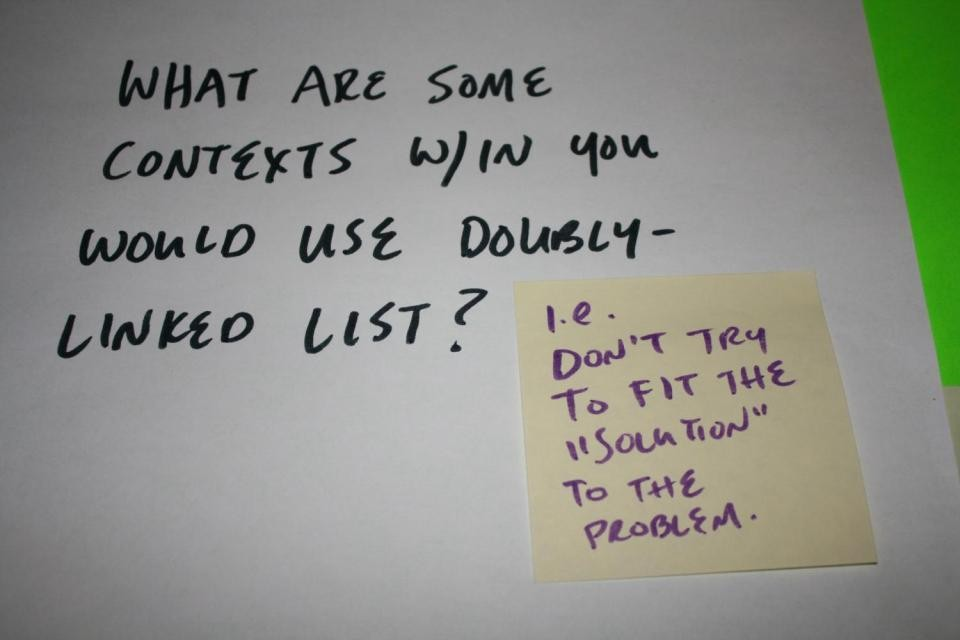 WHAT ARE SOME
CONTEXTS W/IN YOU
WOULD USE DOUBLY-
LINKED LIST?
I.e.
DON'T TRY
TO FIT THE
"SOLUTION"
TO THE
PROBLEM.